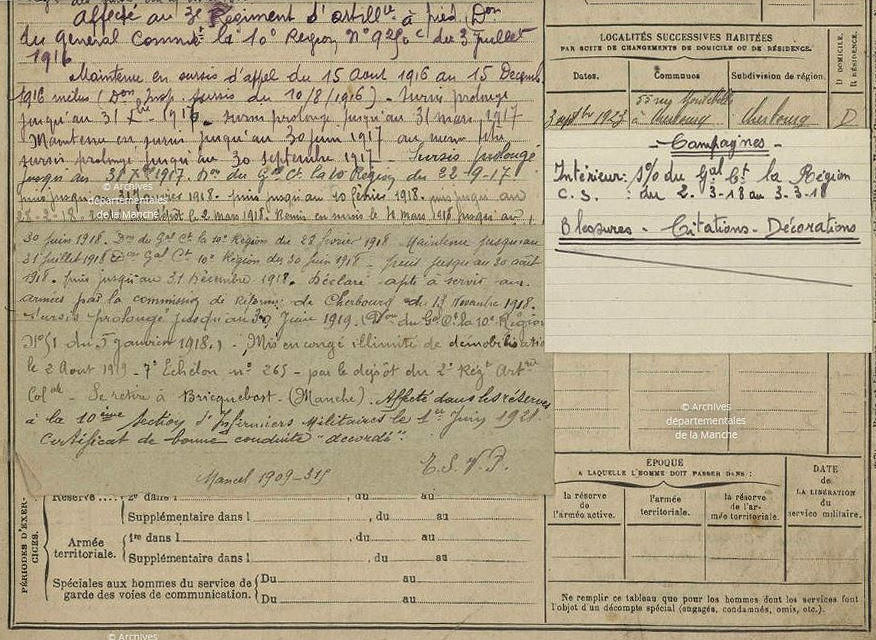 Affecté au 3e Régiment d'artillie à pied, Don
du général Commt la 10e Région, n° du 3 juillet
1916
Maintenu en sursis d'appel du 15 Aout 1916 au 15 Décemb
1916 inclus (Don Insp. sursis du 10/8/1916) - sursis prolongé
jusqu'au 31 Xbre 1916. sursis prolongé jusqu'au 31 mars 1917
Maintenu en sursis jusqu'au 30 juin 1917 au même titre
sursis prolongé jusqu'au 30 septembre 1917 - Sursis prolongé
jusqu'au 31 Xe 1917. Don du Gal Ct la 10 Région du 22-9-17
puis jusqu'au 31 janvier 1918 - puis jusqu'au 10 février 1918. puis jusqu'au
dépôt le 2 mars 1918. Remis en sursis le 4 mars 1918 jusqu'au
30 juin 1918. Don du Gal Ct la 10e Région du 28 février 1918 Maintenu jusqu'au
31 juillet 1918 Don Gal Ct 10e Région du 30 juin 1918 - puis jusqu'au 30 août
1918. puis jusqu'au 31 Décembre 1918. Déclaré apte à servir aux
armées par la commission de Réforme de Cherbourg du 13 Novembre 1918.
Sursis prolongé jusqu'au 30 Juin 1919. (Don du Gal Ct la 10e Région
N°51 du 5 janvier 1918.) - Mis en congé illimité de démobilisatio
le 2 Aout 1919 - 7e Echelon n° 265 - par le dépôt du 2e Régt Artrie
Colale - Se retire à Bricquebost - (Manche). Affecté dans les réserves
à la 10ème Section d'Infirmiers Militaires le 1er Juin 1921.
Certificat de bonne conduite "accordé".
Mancel 1909-315
T.S.V.P.
LOCALITÉS SUCCESSIVES HABITÉES
PAR SUITE DE CHANGEMENTS DE DOMICILE OU DE RÉSIDENCE.
Dates.
Communes
Subdivision de région.
D DOMICILE.
R RÉSIDENCE.
3 septbre 1923
55 rue
à Cherbourg
Cherbourg
D
- Campagnes -
Intérieur: S%du Gal Ct la Région
C. S. : du 2. 3-18 au 3. 3-18
Blessures - Citations - Décorations
© Archives
départementales
de la Manche
© Archives
départementales
de la Manche
ÉPOQUE
A LAQUELLE L'HOMME DOIT PASSER DANS :
la réserve
de
l'armée active.
l'armée
territoriale.
la réserve
de l'ar-
mée territoriale.
DATE
de
LA LIBÉRATION
du
service militaire.
PÉRIODES D'EXER-
CICES.
Réserve .... 2e dans l , du au
Supplémentaire dans l , du au
Armée
territoriale.
1re dans l , du au
Supplémentaire dans l , du au
Spéciales aux hommes du service de
garde des voies de communication.
Du au
Du au
Ne remplir ce tableau que pour les hommes dont les services font
l'objet d'un décompte spécial (engagés, condamnés, omis, etc.).
© Archives